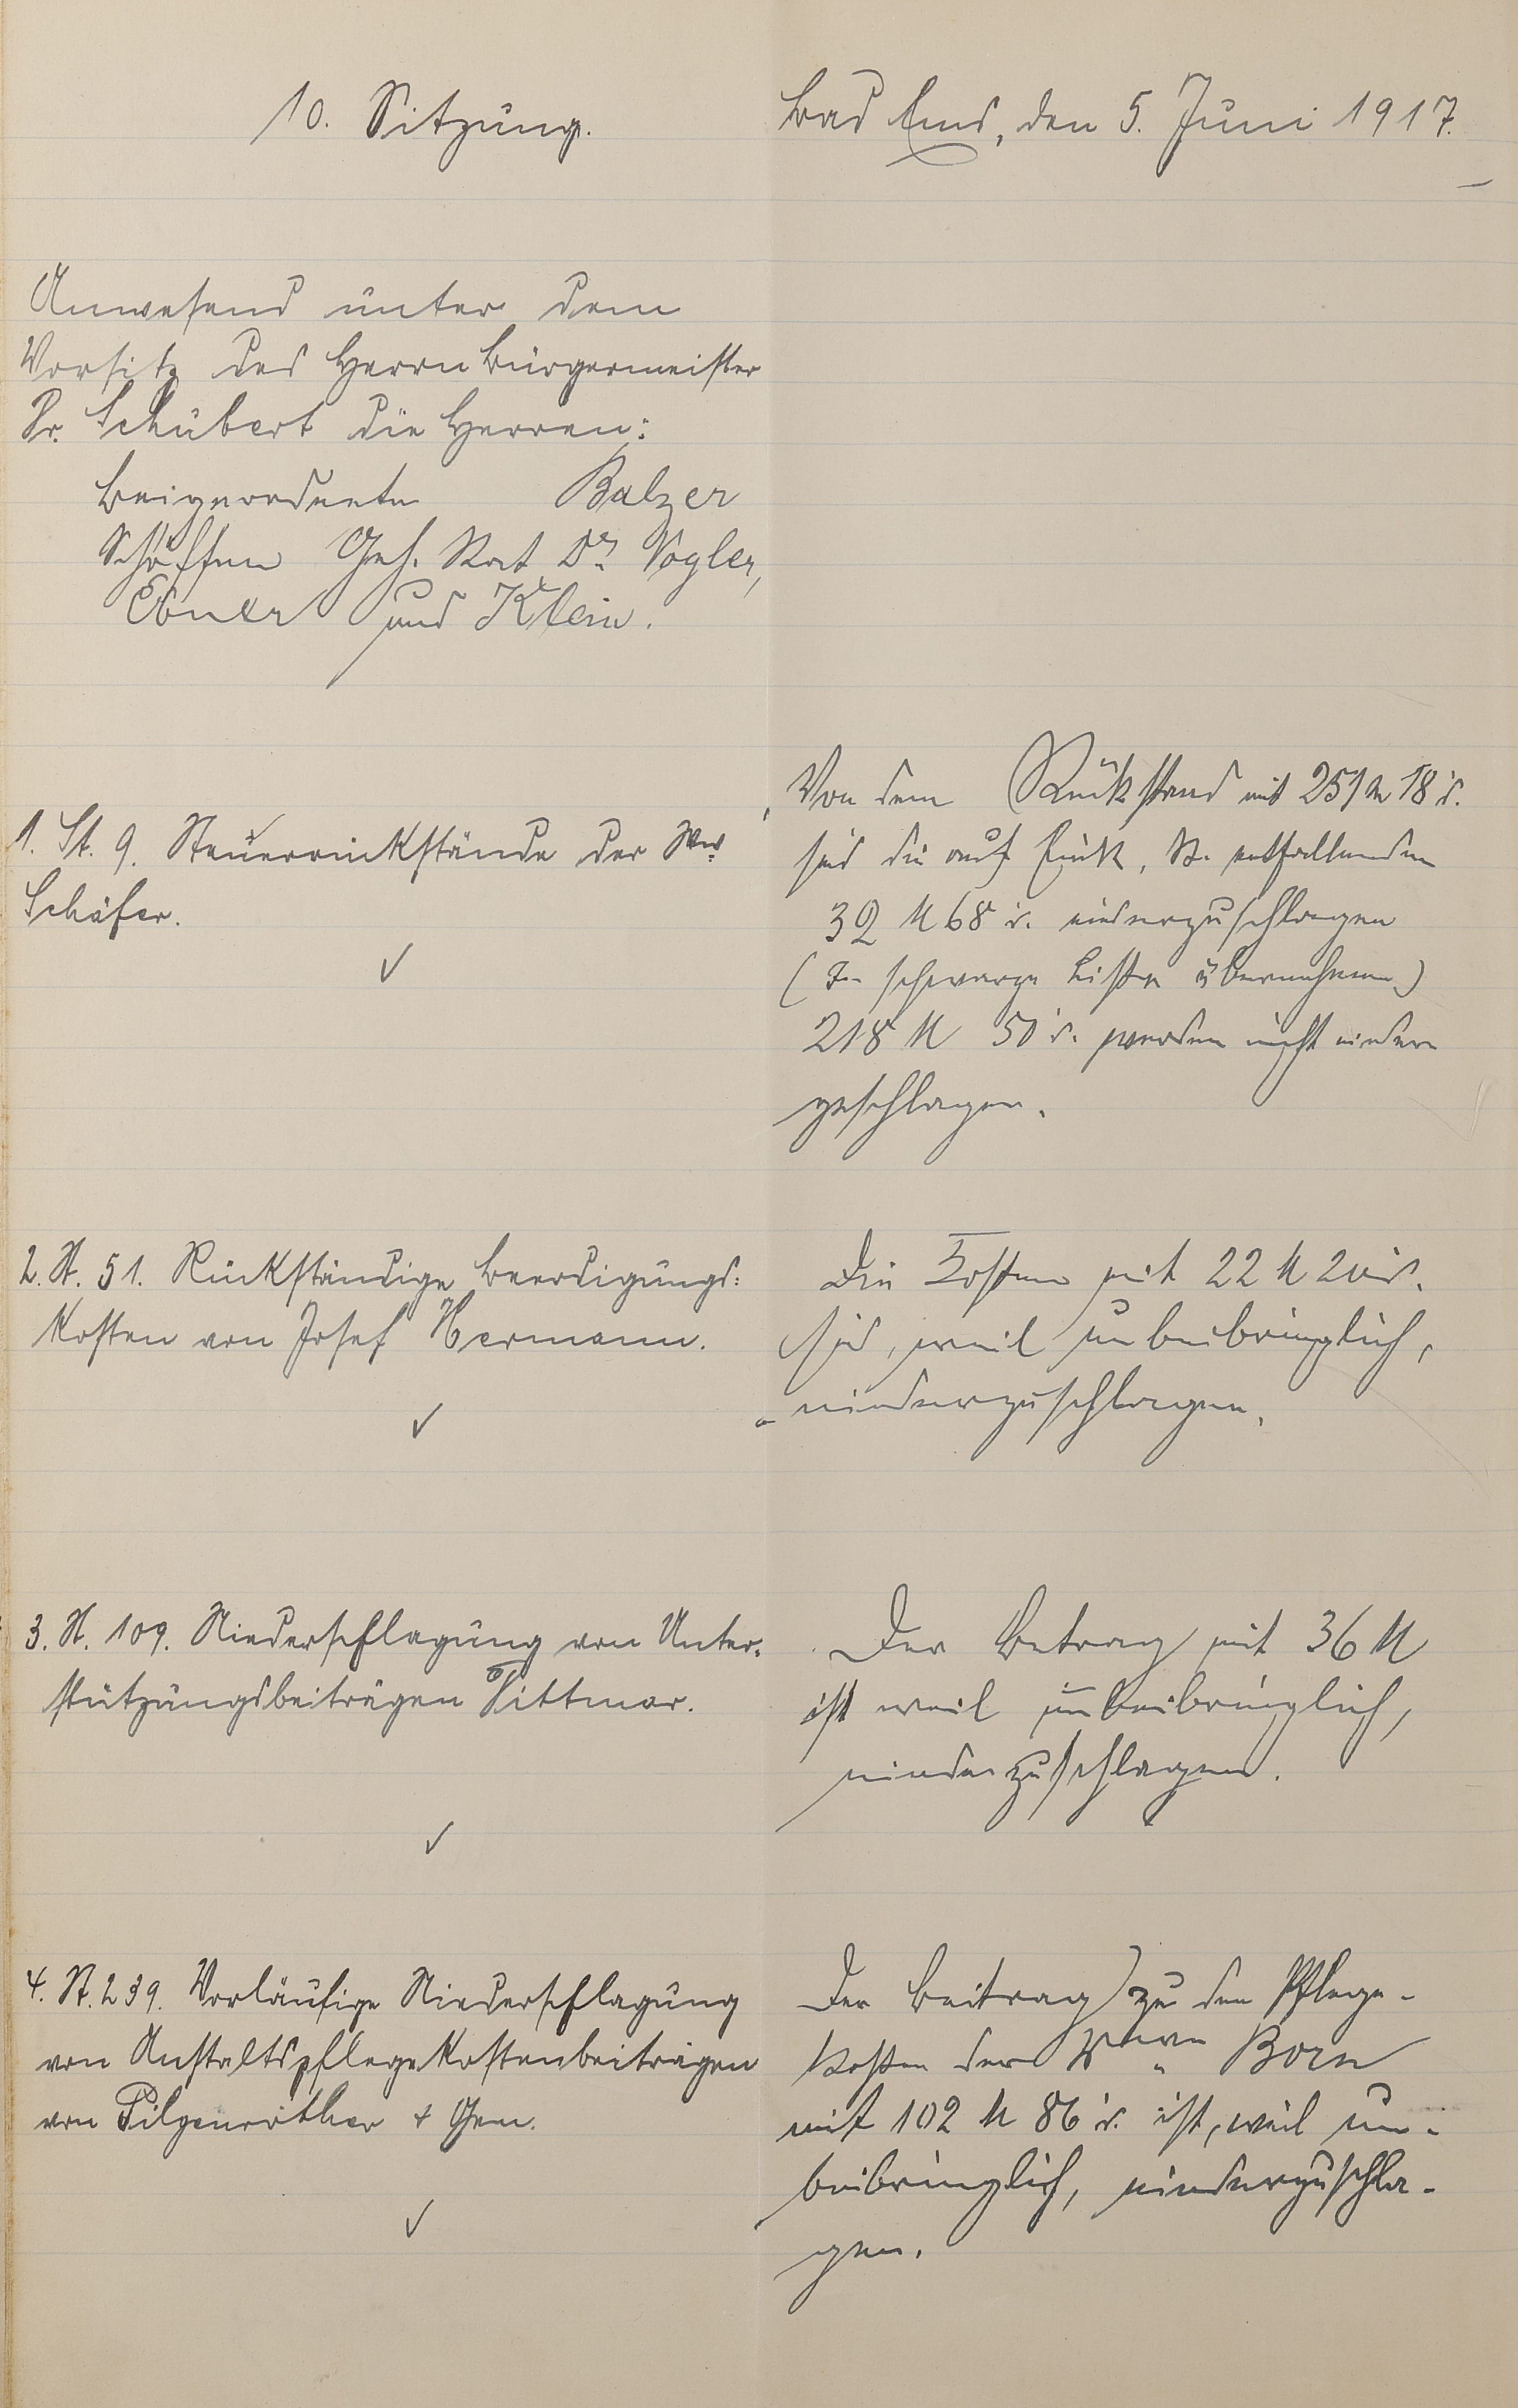 10. Sitzung.
Bad Ems, den 5. Juni 1917.
Anwesend unter dem
Vorsitz des Herrn Bürgermeister
Dr. Schubert die Herren:
Beigeordnete Balzer
Schöffen Geh. Rat Dr. Vogler,
Ebner und Klein.
1. St. 9. Steuerrückstände der Ww.
Schäfer.
Von dem Rückstand mit 251 M 18 d.
sind die auf Eink. St. entfallenden
32 M 68 d. niederzuschlagen
(In schwarze Liste übernehmen)
218 M 50 d. werden nicht nieder
geschlagen.
2. St. 51. Rückständige Beerdigungs:
kosten von Josef Hermann.
Die Kosten mit 22 M 20 d.
sind, weil unbeibringlich,
niederzuschlagen.
3. St. 109. Niederschlagung von Unter:
stützungsbeiträgen Dittmar.
Der Betrag mit 36 M
ist weil unbeibringlich,
niederzuschlagen.
4. St. 239. Vorläufige Niederschlagung
von Anstaltspflegekostenbeiträgen
von Pilgenröther & Gen.
Der Beitrag zu den Pflege-
kosten der Born
mit 102 M 86 d. ist, weil un-
beibringlich, niederzuschla-
gen.